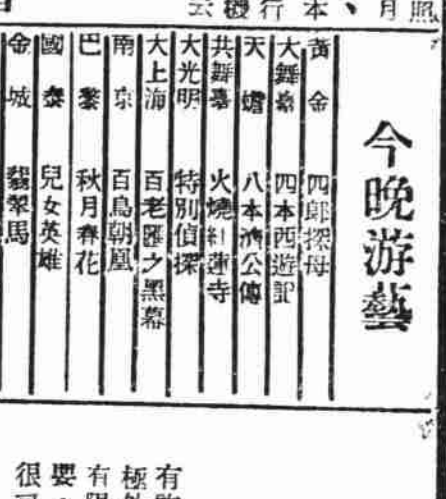 照
月
本
行
今晚游藝
黃金 四郎探母
大舞臺 四本西遊記
天蟾 八本濟公傳
共舞臺 火燒紅蓮寺
大光明 特別偵探
大上海 百老匯之黑幕
南京 百鳥朝凰
巴黎 秋月春花
國泰 兒女英雄
金城 翡翠馬
有
極
有
要
很